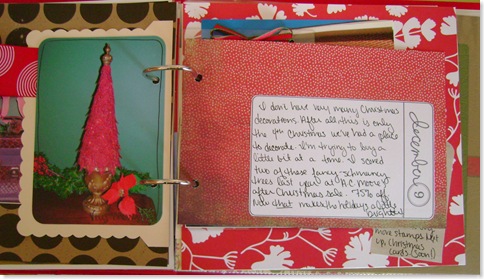 I don't have very many Christmas
decorations. After all, this is only
the 4th Christmas we've had a place
to decorate. I'm trying to buy a
little bit at a time. I scored
two of these fancy-schmancy
trees last year at A.C. Moore's
after Christmas sale. 75% off
now that makes the holidays a little
brighter!
december 9
move stamps
up, Christmas
cards (soon!)